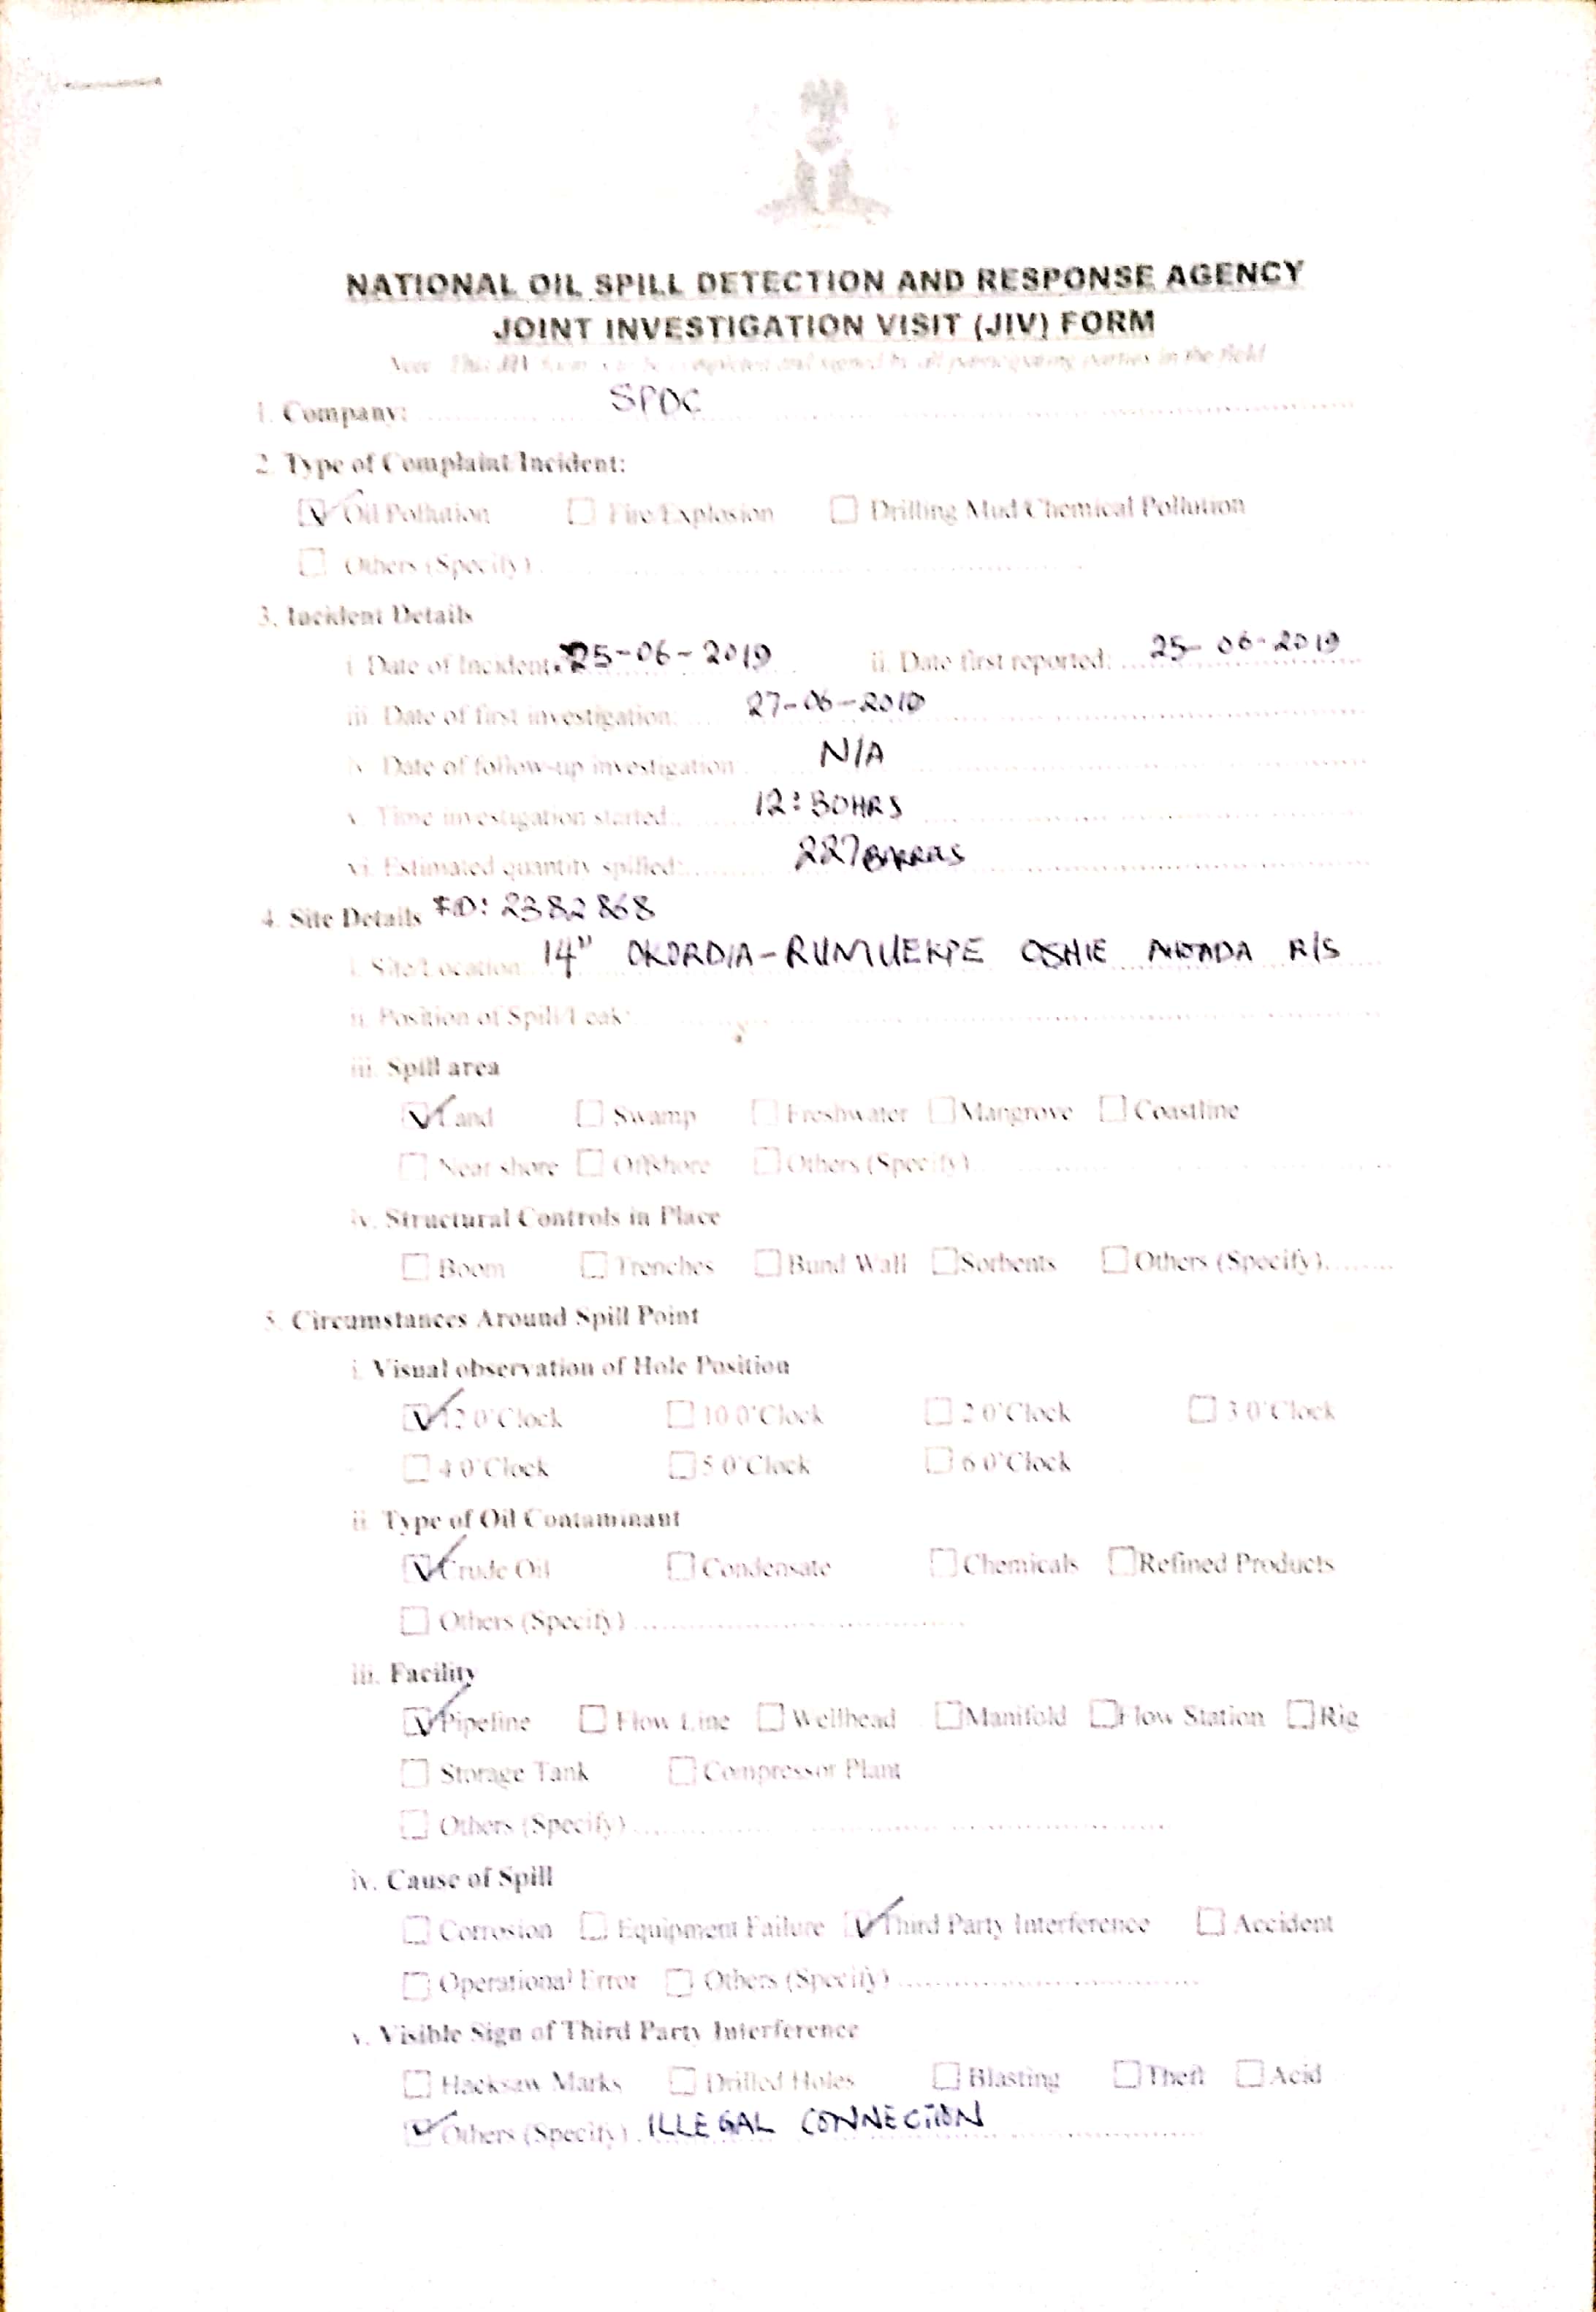 NATIONAL OIL SPILL DETECTION AND RESPONSE AGENCY
JOINT INVESTIGATION VISIT (JIV) FORM
Note: This JIV form is to be completed and signed by all participating parties in the field
1. Company: SPDC
2. Type of Complaint/Incident:
☑ Oil Pollution ☐ Fire/Explosion ☐ Drilling Mud/Chemical Pollution
☐ Others (Specify)
3. Incident Details
i. Date of Incident: 25-06-2019 ii. Date first reported: 25-06-2019
iii. Date of first investigation: 27-06-2019
iv. Date of follow-up investigation N/A
v. Time investigation started: 12:30HRS
vi. Estimated quantity spilled: 227
4. Site Details ID: 2382868
i. Site/Location 14" OKORDIA-RUMUEKPE OSHIE R/S
ii. Position of Spill/Leak:
iii. Spill area
☑ Land ☐ Swamp ☐ Freshwater ☐ Mangrove ☐ Coastline
☐ Near shore ☐ Offshore ☐ Others (Specify)
iv. Structural Controls in Place
☐ Boom ☐ Trenches ☐ Bund Wall ☐ Sorbents ☐ Others (Specify)
5. Circumstances Around Spill Point
i. Visual observation of Hole Position
☑ 12 0'Clock ☐ 10 0'Clock ☐ 2 0'Clock ☐ 3 0'Clock
☐ 4 0'Clock ☐ 5 0'Clock ☐ 6 0'Clock
ii. Type of Oil Contaminant
☑ Crude Oil ☐ Condensate ☐ Chemicals ☐ Refined Products
☐ Others (Specify)
iii. Facility
☑ Pipeline ☐ Flow Line ☐ Wellhead ☐ Manifold ☐ Flow Station ☐ Rig
☐ Storage Tank ☐ Compressor Plant
☐ Others (Specify)
iv. Cause of Spill
☐ Corrosion ☐ Equipment Failure ☑ Third Party Interference ☐ Accident
☐ Operational Error ☐ Others (Specify)
v. Visible Sign of Third Party Interference
☐ Hacksaw Marks ☐ Drilled Holes ☐ Blasting ☐ Theft ☐ Acid
☑ Others (Specify) ILLEGAL CONNECTION